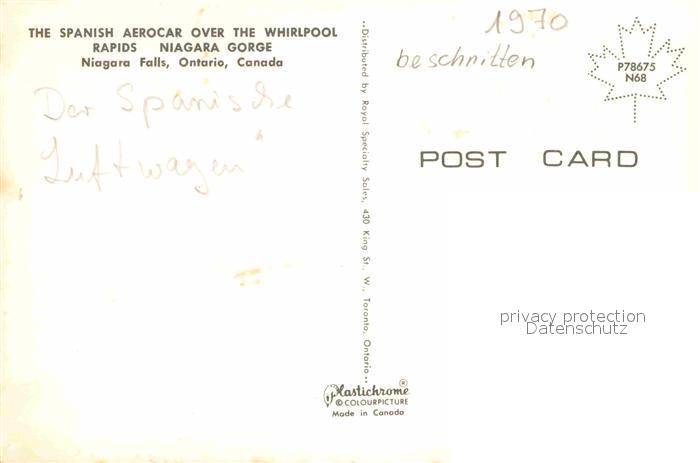 THE SPANISH AEROCAR OVER THE WHIRLPOOL
RAPIDS NIAGARA GORGE
Niagara Falls, Ontario, Canada
Der Spanische
Luftwagen"
••Distributed by Royal Specialty Sales, 430 King St., W., Toronto, Ontario••
1970
beschnitten
P78675
N68
POST CARD
privacy protection
Datenschutz
Plastichrome®
© COLOURPICTURE
Made in Canada